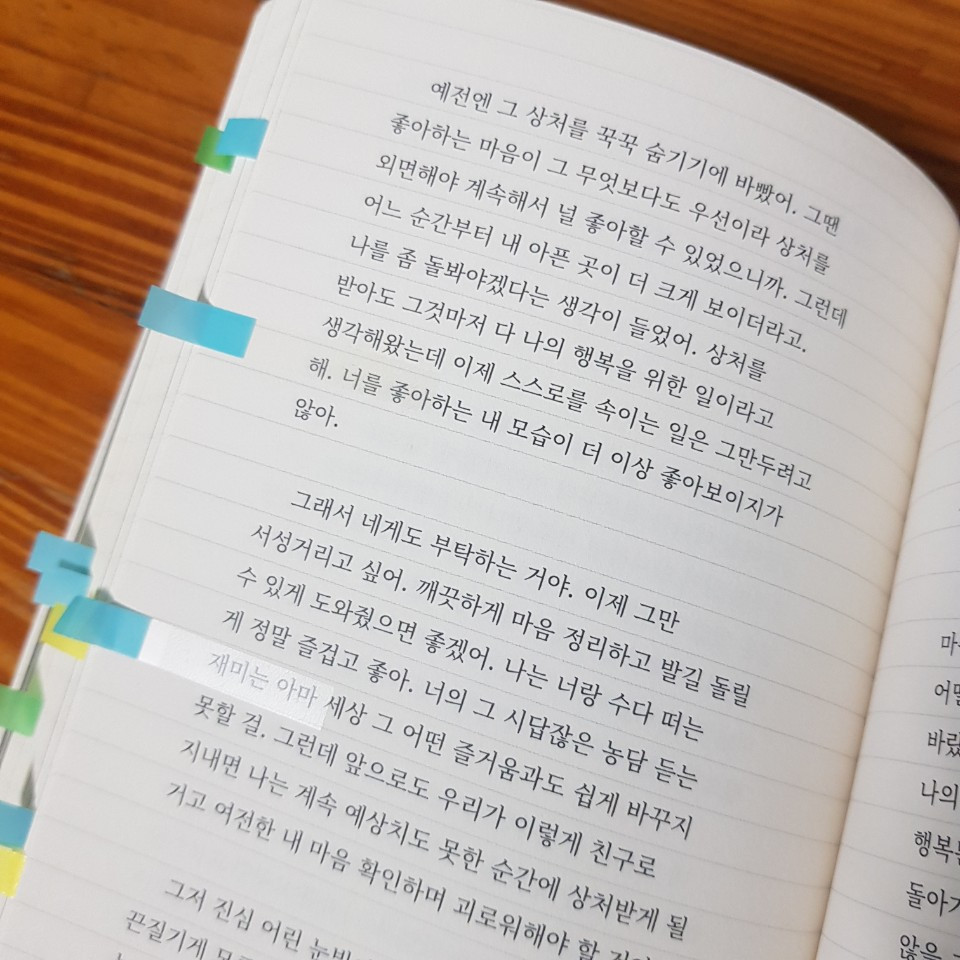 예전엔 그 상처를 꾹꾹 숨기기에 바빴어. 그땐
좋아하는 마음이 그 무엇보다도 우선이라 상처를
외면해야 계속해서 널 좋아할 수 있었으니까. 그런데
어느 순간부터 내 아픈 곳이 더 크게 보이더라고.
나를 좀 돌봐야겠다는 생각이 들었어. 상처를
받아도 그것마저 다 나의 행복을 위한 일이라고
생각해왔는데 이제 스스로를 속이는 일은 그만두려고
해. 너를 좋아하는 내 모습이 더 이상 좋아보이지가
않아.
그래서 네게도 부탁하는 거야. 이제 그만
서성거리고 싶어. 깨끗하게 마음 정리하고 발길 돌릴
수 있게 도와줬으면 좋겠어. 나는 너랑 수다 떠는
게 정말 즐겁고 좋아. 너의 그 시답잖은 농담 듣는
재미는 아마 세상 그 어떤 즐거움과도 쉽게 바꾸지
못할 걸. 그런데 앞으로도 우리가 이렇게 친구로
지내면 나는 계속 예상치도 못한 순간에 상처받게 될
거고 여전한 내 마음 확인하며 괴로워해야 할
그저 진심 어린
끈질기게
바랐
나의
돌아가
않은